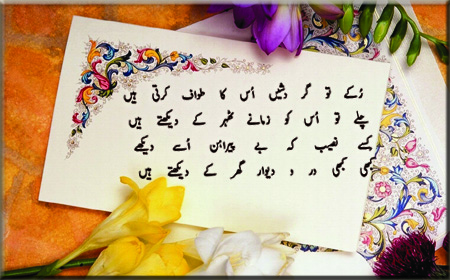 رُکے تو گر دشیں اُس کا طواف کرتی ہیں
چلے تو اُس کو زمانے ٹھہر کے دیکھتے ہیں
کسے نصیب کہ بے پیراہن اُسے دیکھے
کبھی کبھی در و دیوار گھر کے دیکھتے ہیں